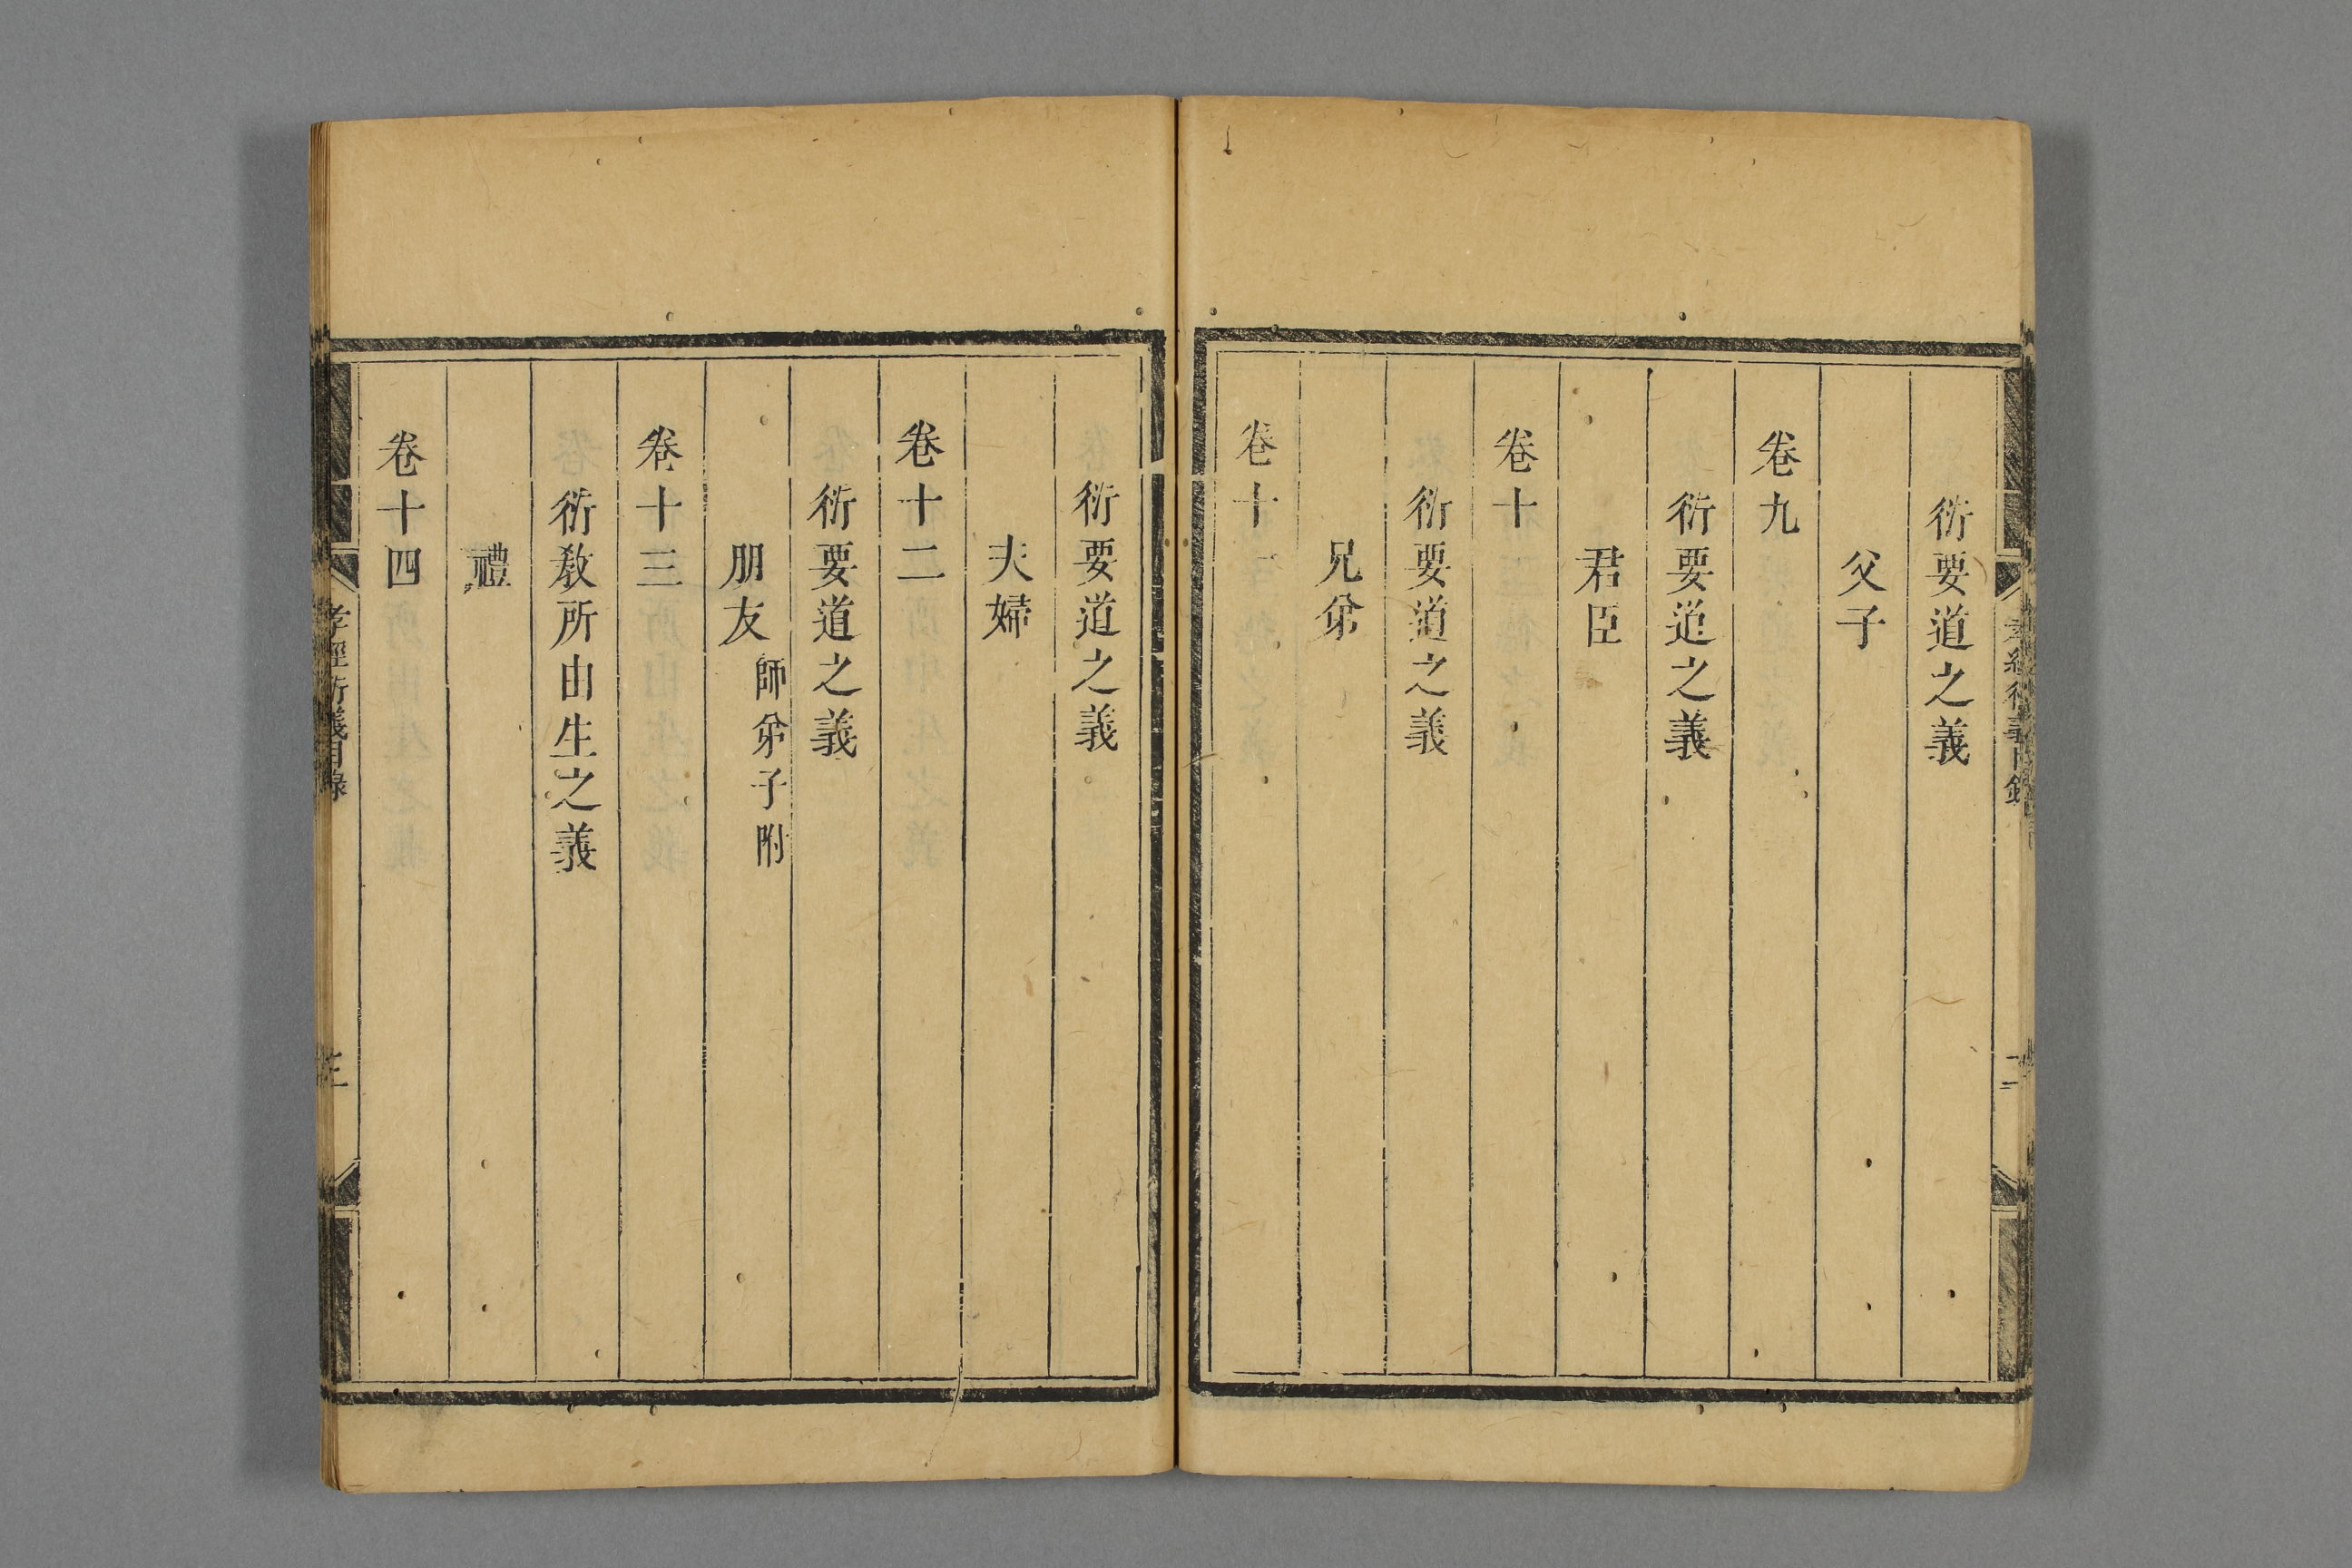 衍要道之義
父子
卷九
衍要道之義
君臣
卷十
衍要道之義
兄弟
卷十一
衍要道之義
夫婦
卷十二
衍要道之義
朋友 師弟子附
卷十三
衍敎所由生之義
禮
卷十四
孝經衍義目錄
二
孝經衍義目錄
三